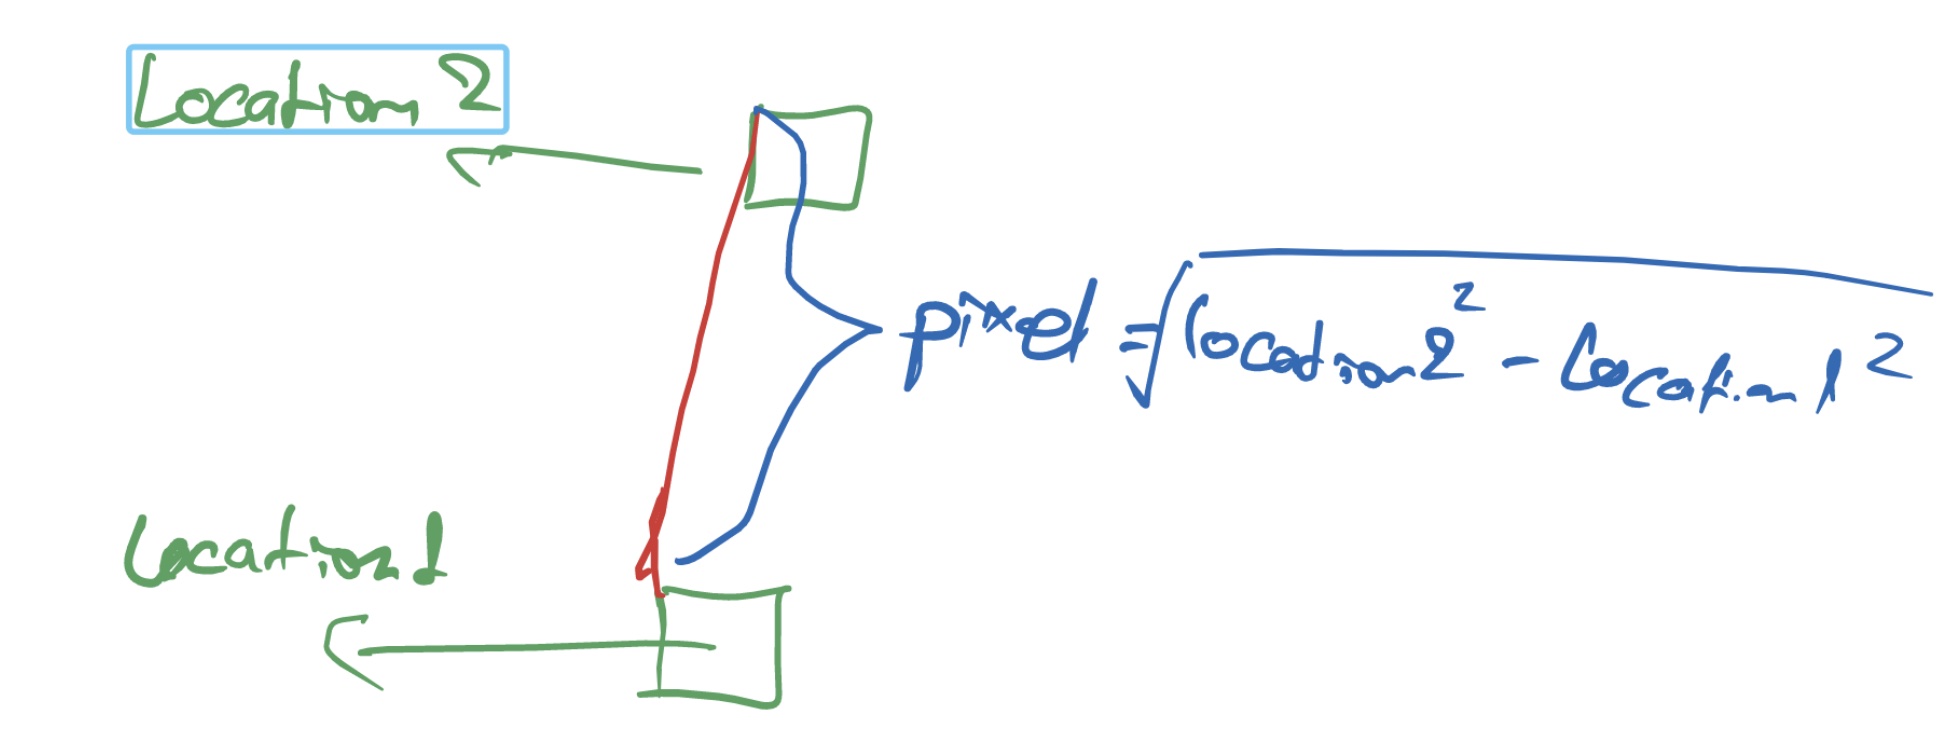 Location 2
pixel = √location2² - Location1²
Location1